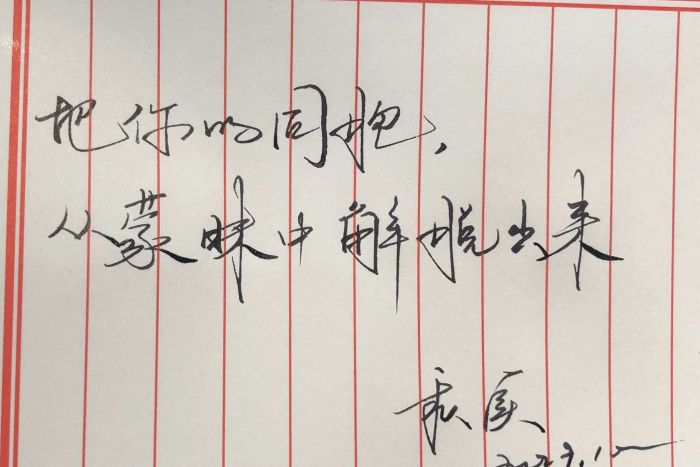 把你的同胞，
从蒙昧中解脱出来